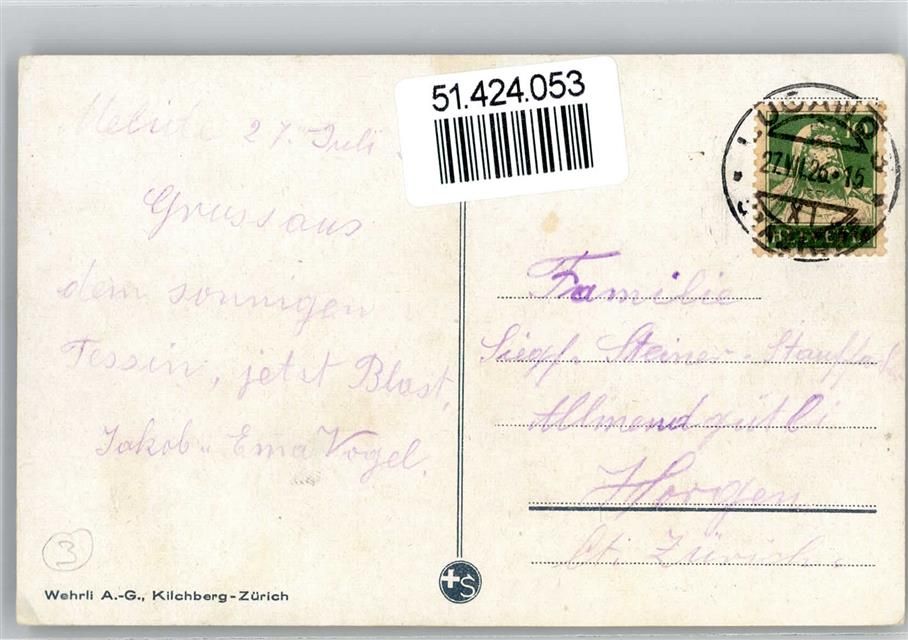 51.424.053
Melide 27. Juli
Gruss aus
dem sonnigen
Tessin, jetzt Blast,
Jakob u. Ema Vogel.
LUGANO
27.VII.26.-15
Familie
Siegf. Steiner-Stauffach
Allmendgütli
Horgen
Ct. Zürich.
3
+S
Wehrli A.-G., Kilchberg-Zürich